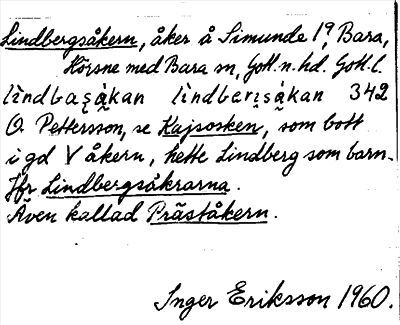 Lindbergsåkern, åker å Simunde 1⁹, Bara,
Hörsne med Bara sn, Gotl. n. hd. Gotl. l.
lìndbaʂàkan lìndbarısàkan 342
O. Pettersson, se Kajsosken, som bott
i gd V åkern, hette Lindberg som barn.
Jfr Lindbergsåkrarna.
Även kallad Präståkern.
Inger Eriksson 1960.